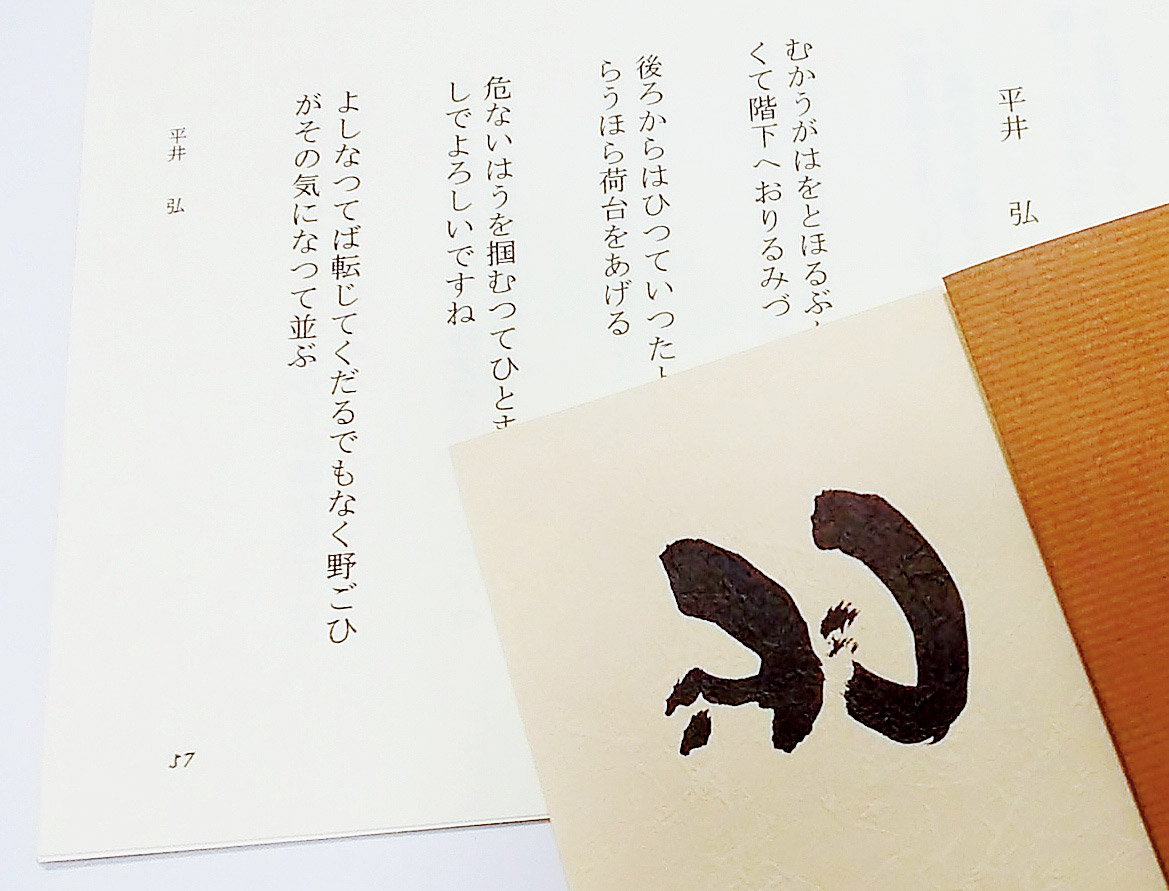 平井 弘
むかうがはをとほるぶ
くて階下へおりるみづ
後ろからはひつていつた
らうほら荷台をあげる
危ないはうを掴むつてひと
しでよろしいですね
よしなつてば転じてくだるでもなく野ごひ
がその気になつて並ぶ
平井 弘
57
羽